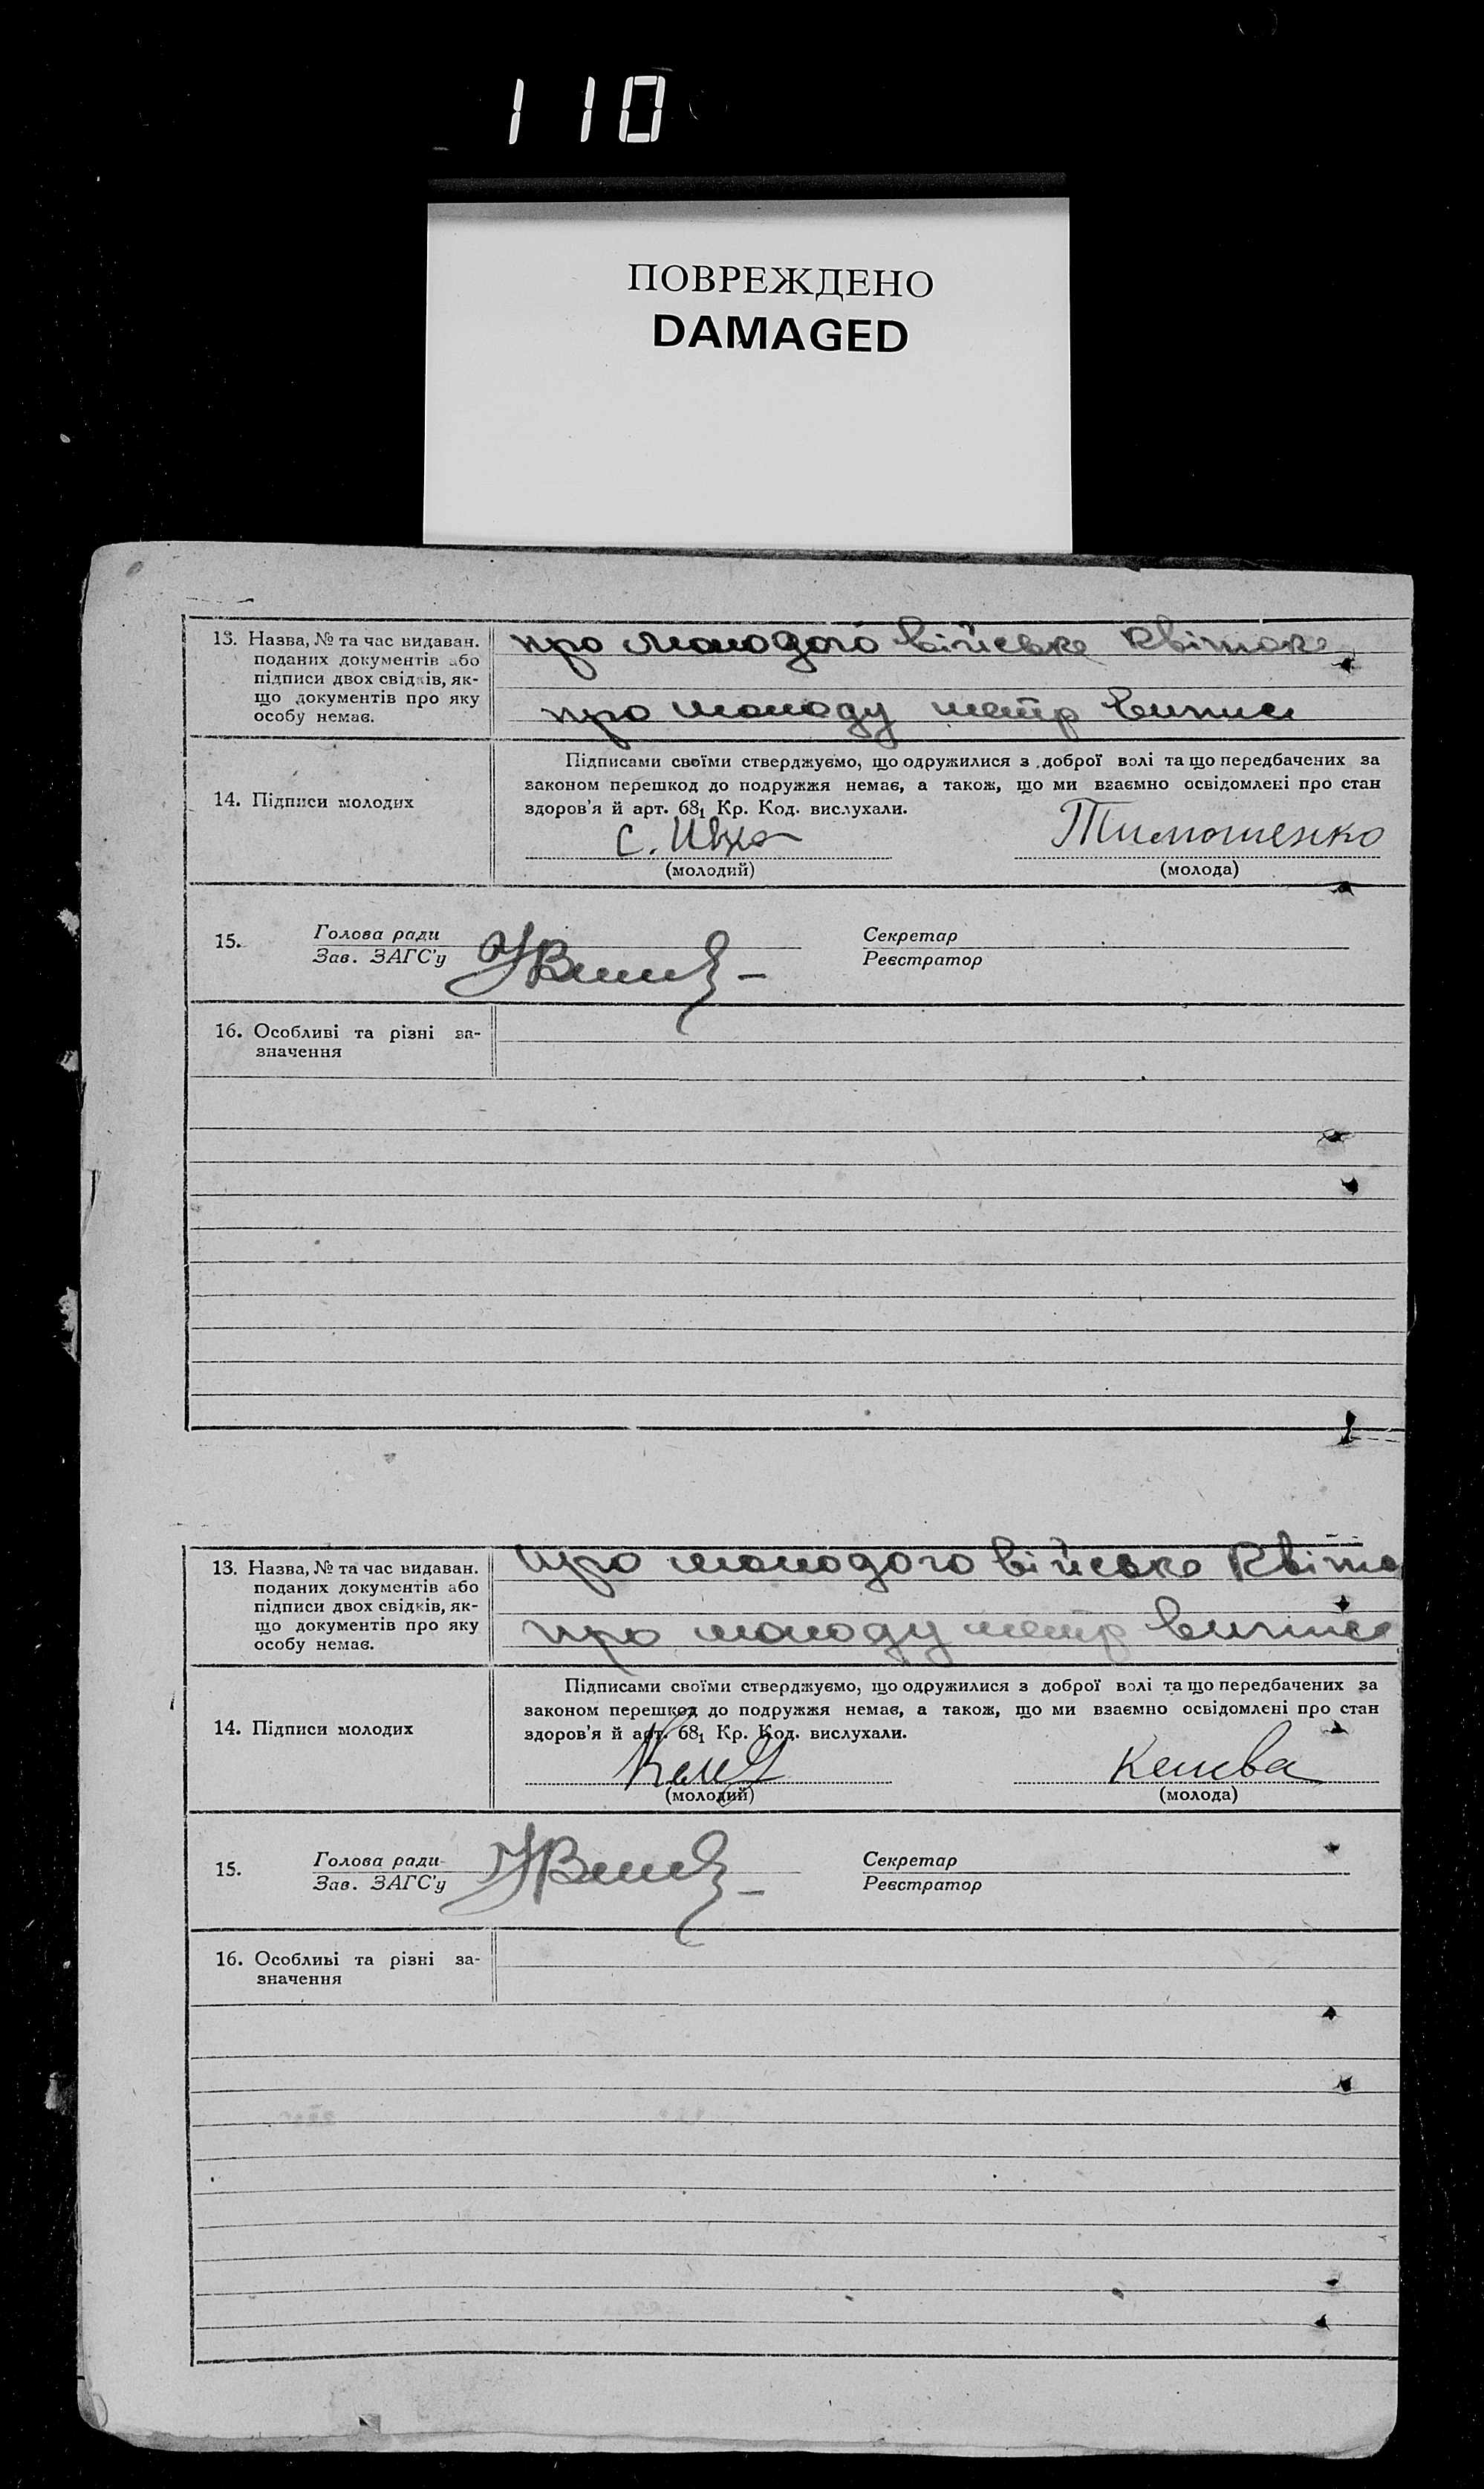 110
ПОВРЕЖДЕНО
DAMAGED
13. Назва, № та час видаван.
поданих документів або
підписи двох свідків, як-
що документів про яку
особу немає.
про молодого військ Квіток
про молоду метр Випис
14. Підписи молодих
Підписами своїми стверджуємо, що одружилися з доброї волі та що передбачених за
законом перешкод до подружжя немає, а також, що ми взаємно освідомлені про стан
здоров'я й арт. 68₁ Кр. Код. вислухали.
С. Тимошенко
(молодий) (молода)
15. Голова ради Секретар
Зав. ЗАГС'у Реєстратор
16. Особливі та різні за-
значення
13. Назва, № та час видаван.
поданих документів або
підписи двох свідків, як-
що документів про яку
особу немає.
про молодого військ Квіто
про молоду метр Випис
14. Підписи молодих
Підписами своїми стверджуємо, що одружилися з доброї волі та що передбачених за
законом перешкод до подружжя немає, а також, що ми взаємно освідомлені про стан
здоров'я й арт. 68₁ Кр. Код. вислухали.
(молодий) (молода)
15. Голова ради Секретар
Зав. ЗАГС'у Реєстратор
16. Особливі та різні за-
значення